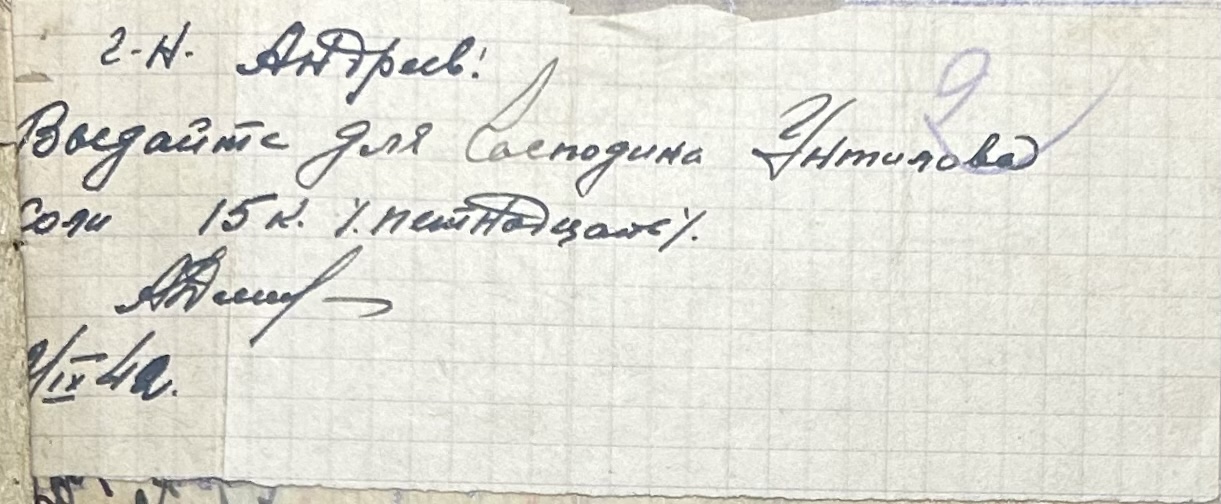 г-н. Андреев!
Выдайте для Господина Унтилова
соли 15 к. /.петнадцать/.
2/IX 42.
2